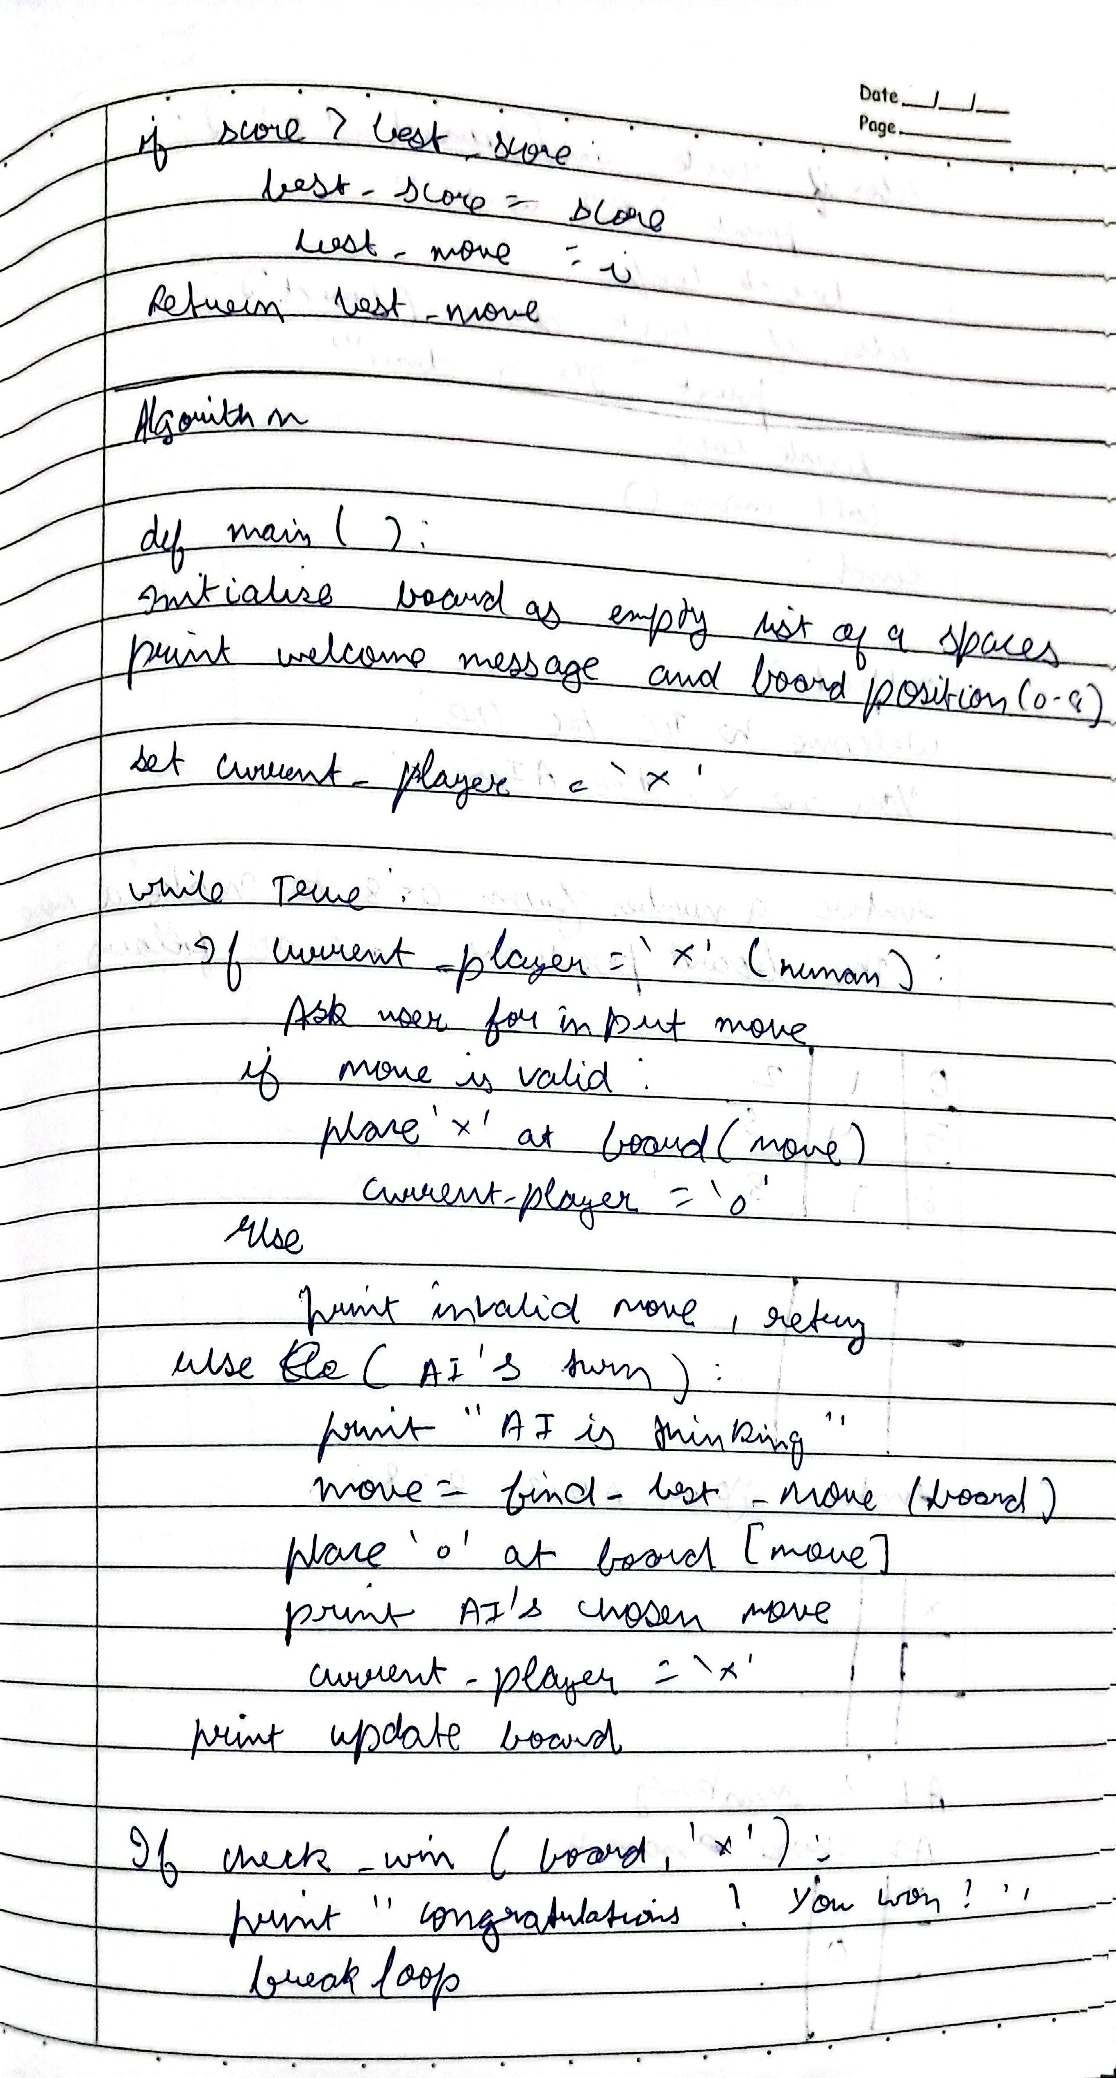 Date __/__/__
Page.
if score > best_score:
best-score = score
best-move = i
Return best-move
Algorithm
def main ( ):
Initialise board as empty list of 9 spaces
print welcome message and board position (0-8)
set current-player = 'x'
while True:
If current-player = 'x' (human):
Ask user for input move
if move is valid:
place 'x' at board (move)
current-player = 'o'
else
print invalid move, retry
else (AI's turn):
print "AI is thinking"
move = find-best-move (board)
place 'o' at board [move]
print AI's chosen move
current-player = 'x'
print update board
If check-win (board, 'x'):
print "congratulations! You won!"
break loop